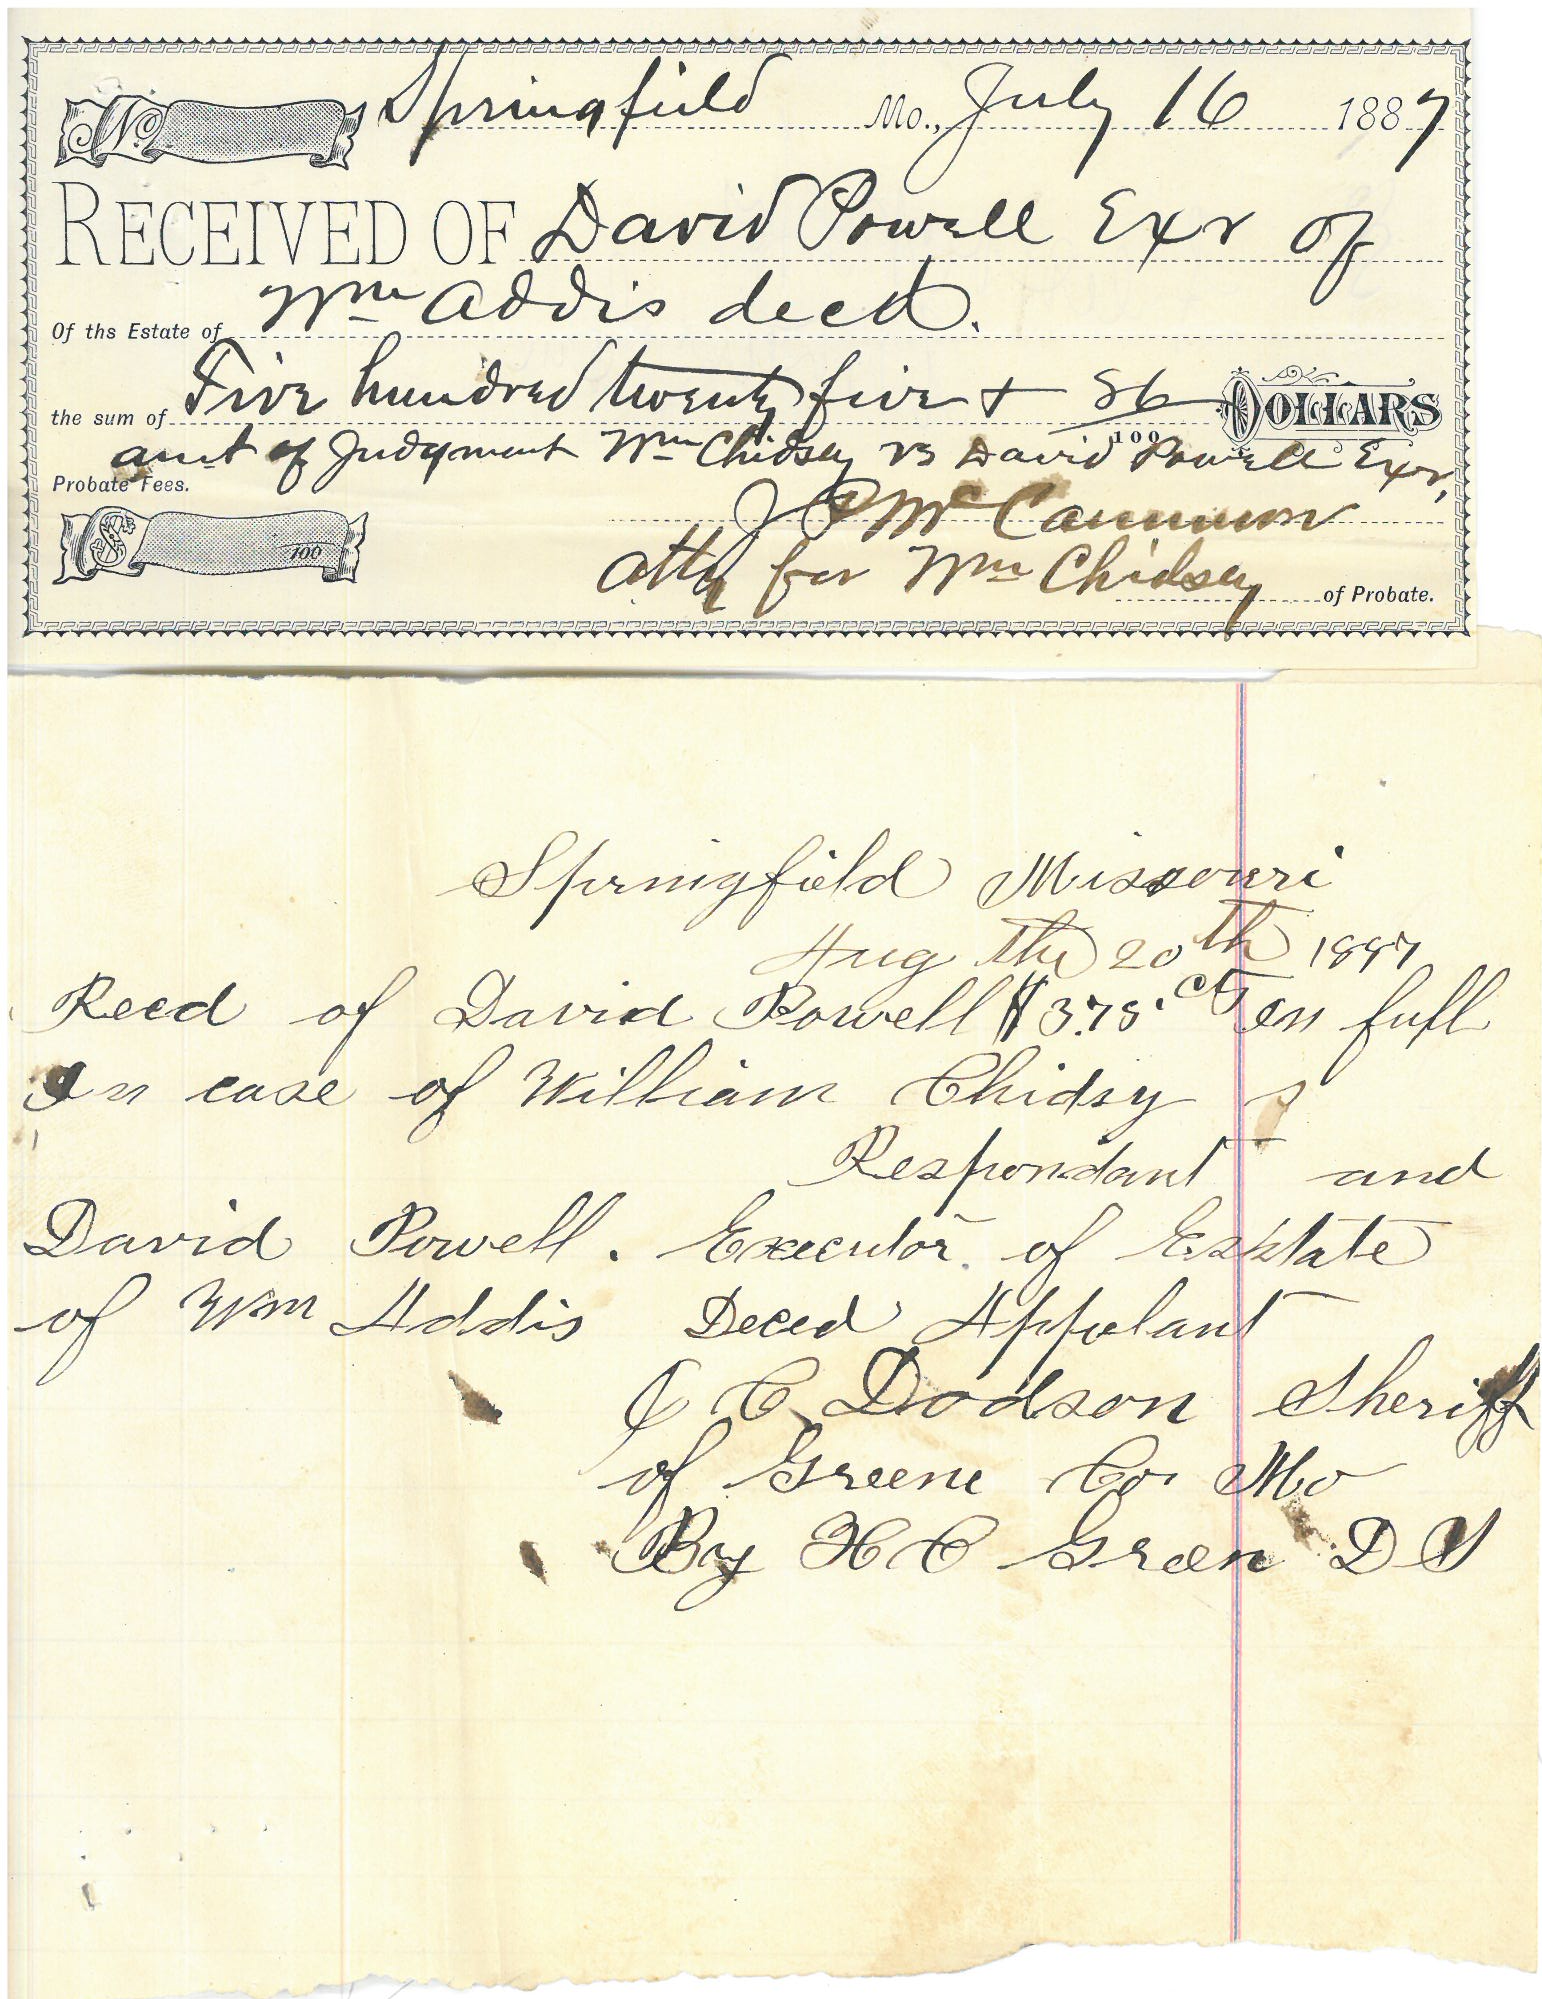 No. Springfield Mo., July 16 1887
RECEIVED OF David Powell Exr of
Of ths Estate of Wm Addis decd.
the sum of Five hundred twenty five & 86/100 DOLLARS
amt of Judgment Wm Chidsey vs David Powell Exr,
Probate Fees.
J P McCammon
$ 100
atty for Wm Chidsey of Probate.
Springfield Missouri
Aug the 20th 1887
Recd of David Powell $3.75 cts In full
In case of William Chidsy
Respondant and
David Powell. Executor of Esstate
of Wm Addis Deced Appelant
J C Dodson Sheriff
of Greene Co Mo
By H C Green D S